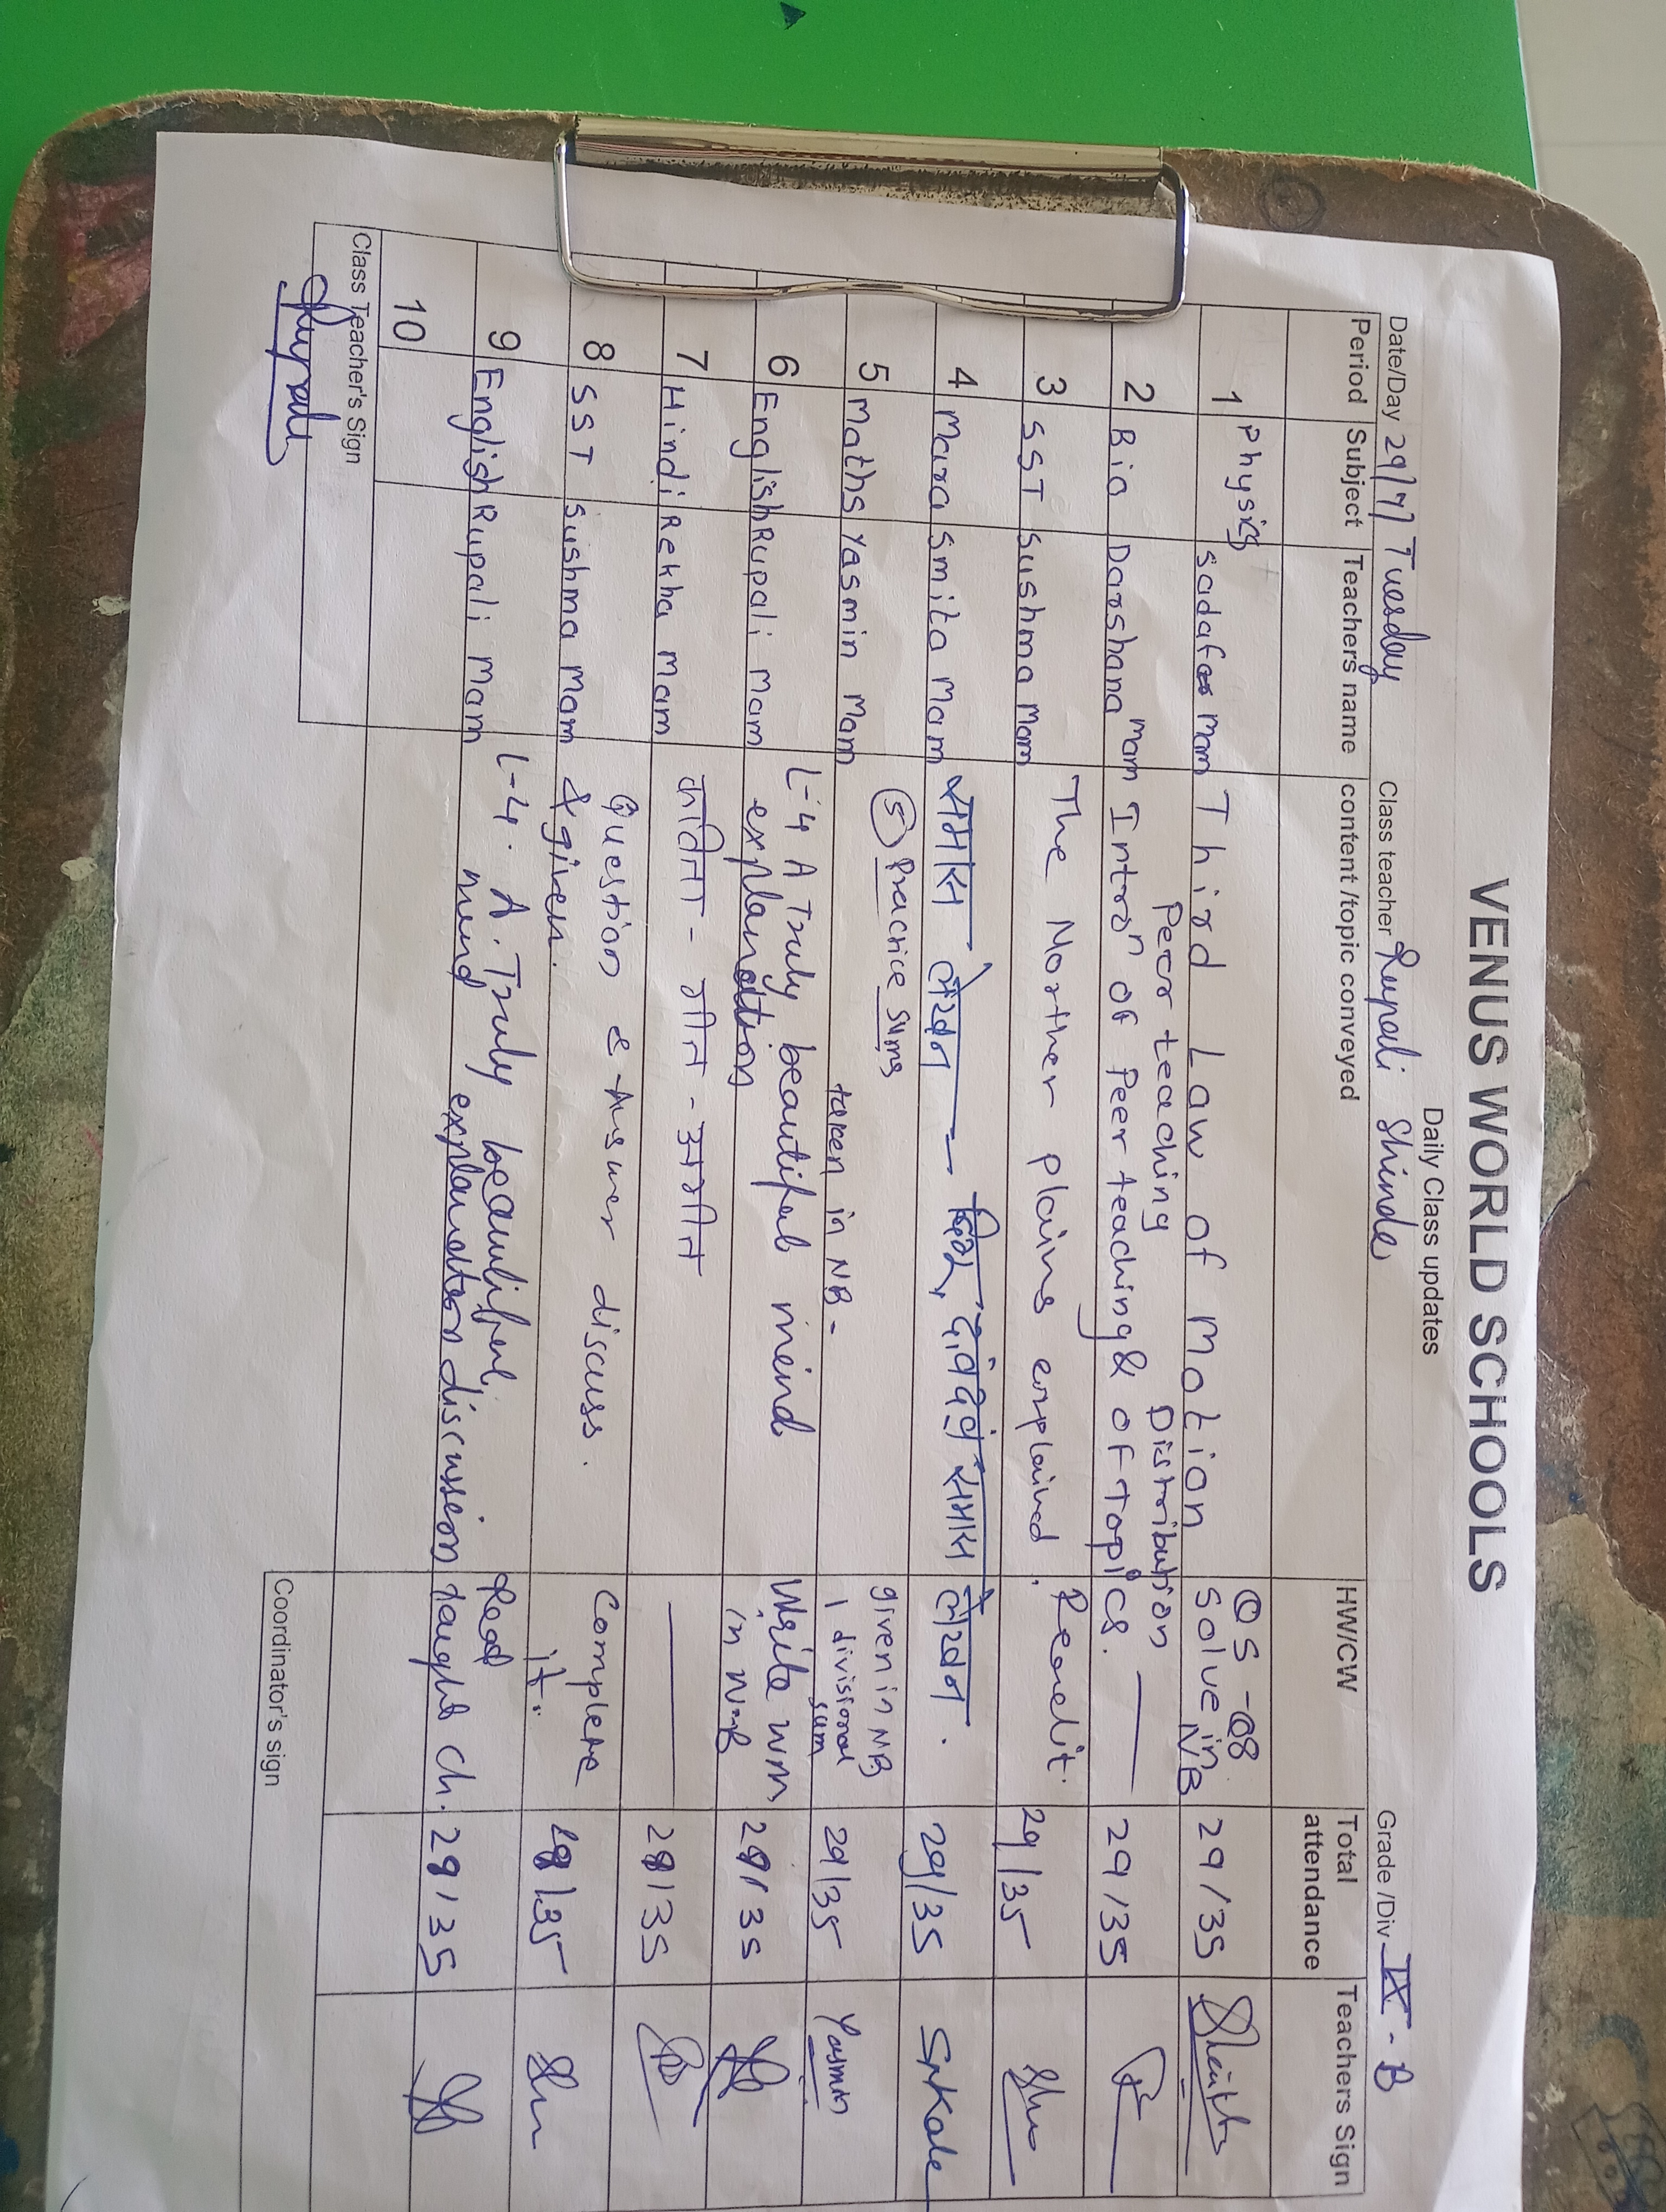 VENUS WORLD SCHOOLS
Daily Class updates
Date/Day 29/7/ Tuesday Class teacher Rupali Shinde Grade /Div IX - B
Period Subject Teachers name content /topic conveyed HW/CW Total attendance Teachers Sign
1 Physics sadaf mam Third Law of Motion QS -08 solve in NB 29/35
Peer teaching Distribution
2 Bio Darshana mam Intro^n of Peer teaching & of Topics. — 29/35
3 SST Sushma Mam The Norther plains explained. Readit. 29/35
4 Mara Smita Mam समास लेखन — द्विगु, द्वंद्व समास लेखन. 29/35 SNKale
5 Maths Yasmin Mam ⑤ Practice sums taken in NB - given in NB 1 divisional sum 29/35 Yasmin
6 English Rupali Mam L-4 A Truly beautiful mind explanation Write wm in W-B 29/35
7 Hindi Rekha Mam कविता - गीत - अगीत — 29/35
8 SST Sushma Mam Question & Answer discuss. & given. Complete 29/35 Shu
9 English Rupali Mam L-4. A. Truly beautiful mind explanation discussion Read it. taught ch. 29/35
10
Class Teacher's Sign
Coordinator's sign